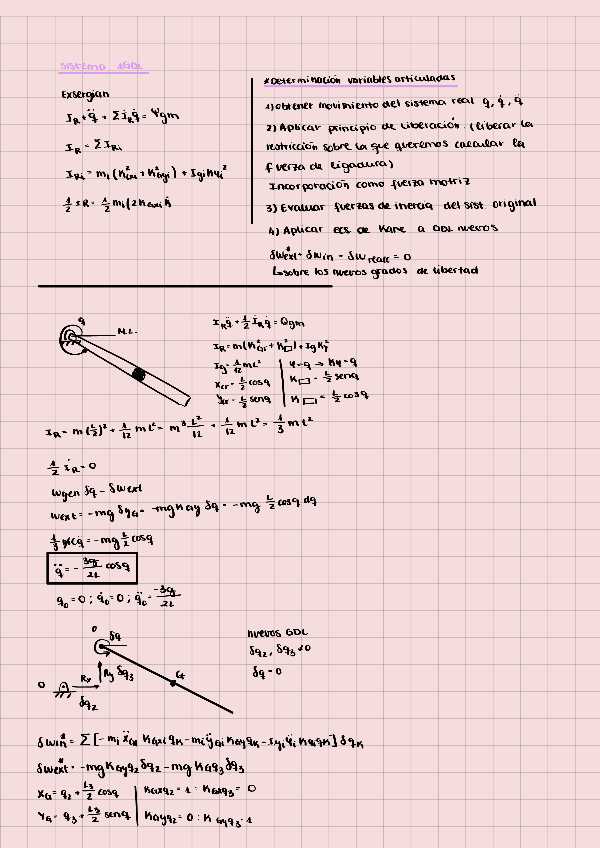 Sistema 1GDL
Exsergian
I_R · q̈ + Σ İ_R q̇ = Ψgm
I_R = Σ I_Ri
I_Ri = mi (K²Gxi + K²Gyi) + Igi Kφi²
1/2 İR = 1/2 mi (2 KGxi K̇
*Determinación variables articuladas
1) obtener movimiento del sistema real q, q̇, q̈
2) Aplicar principio de liberación. (liberar la
restricción sobre la que queremos calcular la
fuerza de ligadura)
Incorporación como fuerza motriz
3) Evaluar fuerzas de inercia del sist. original
4) Aplicar ecs de Kane a GDL nuevos
δWext + δWin - δWreacc = 0
↳ sobre los nuevos grados de libertad
q
M.L.
I_R q̈ + 1/2 İ_R q̇ = Qgm
I_R = m (K²Gx + K²□) + Ig Kφ²
Ig = 1/12 mL²
φ = -q → Kφ = -q
xG = L/2 cosq
K□ = - L/2 senq
yG = L/2 senq
K□ = L/2 cosq
I_R = m (L/2)² + 1/12 mL² = m 3 L²/12 + 1/12 mL² = 1/3 mL²
1/2 İR = 0
Wgen δq = δWext
Wext = -mg δyG = -mg KGy δq = -mg L/2 cosq dq
1/3 mL² q̈ = -mg L/2 cosq
q̈ = - 3g/2L cosq
q0 = 0 ; q̇0 = 0 ; q̈0 = -3g/2L
0
δq
G
0
Rx
Ry
δq3
δq2
nuevos GDL
δq2, δq3 ≠ 0
δq = 0
δWin* = Σ [-mi ẍGi KGxi qK - mi ÿGi KGyi qK - Igi φ̈i Kφi qK] δqK
δWext* = -mg KGyq2 δq2 - mg KGyq3 δq3
XG = q2 + L3/2 cosq
KGxq2 = 1 ; KGxq3 = 0
YG = q3 + L3/2 senq
KGyq2 = 0 ; KGyq3 = 1